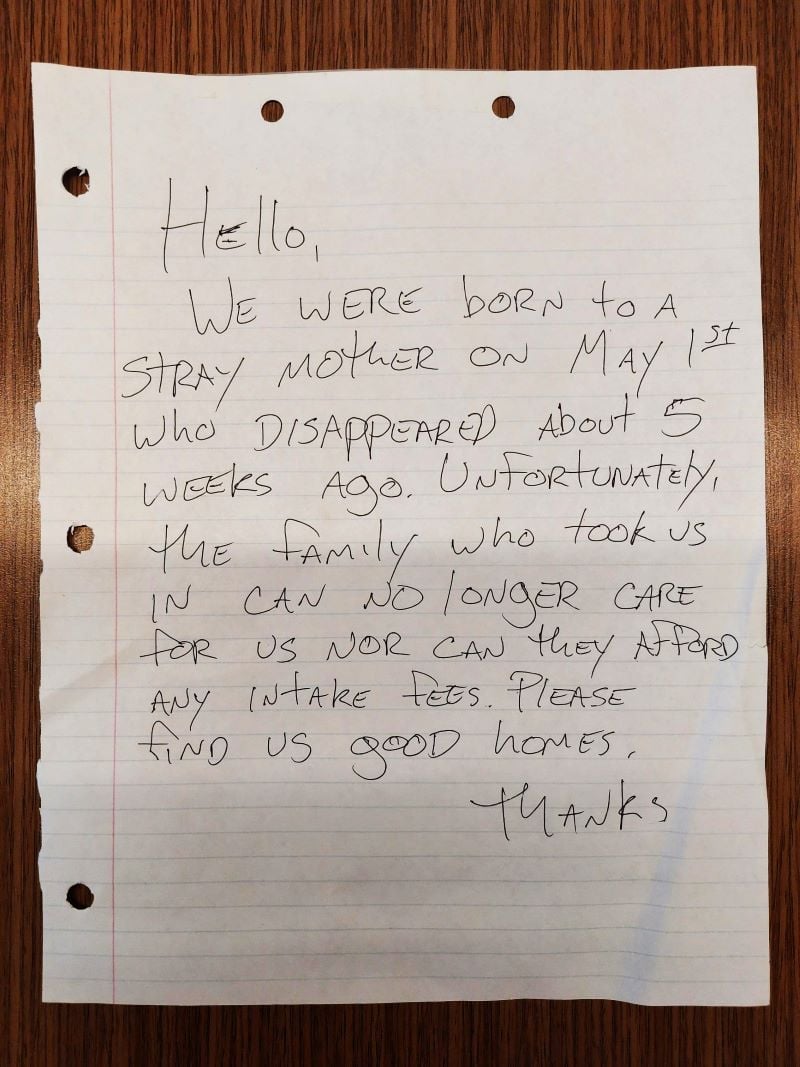 Hello,
WE WERE bORN to A
STRAY MOthER ON MAY 1st
Who DISAPPEARED About 5
WEEKS Ago. UNFORTUNAtEly,
thE fAMIly who took us
IN CAN NO lONgER CARE
foR US NOR CAN thEy AffORD
ANY INtAkE fEES. PlEASE
fIND US gOOD hOMES.
thANKS